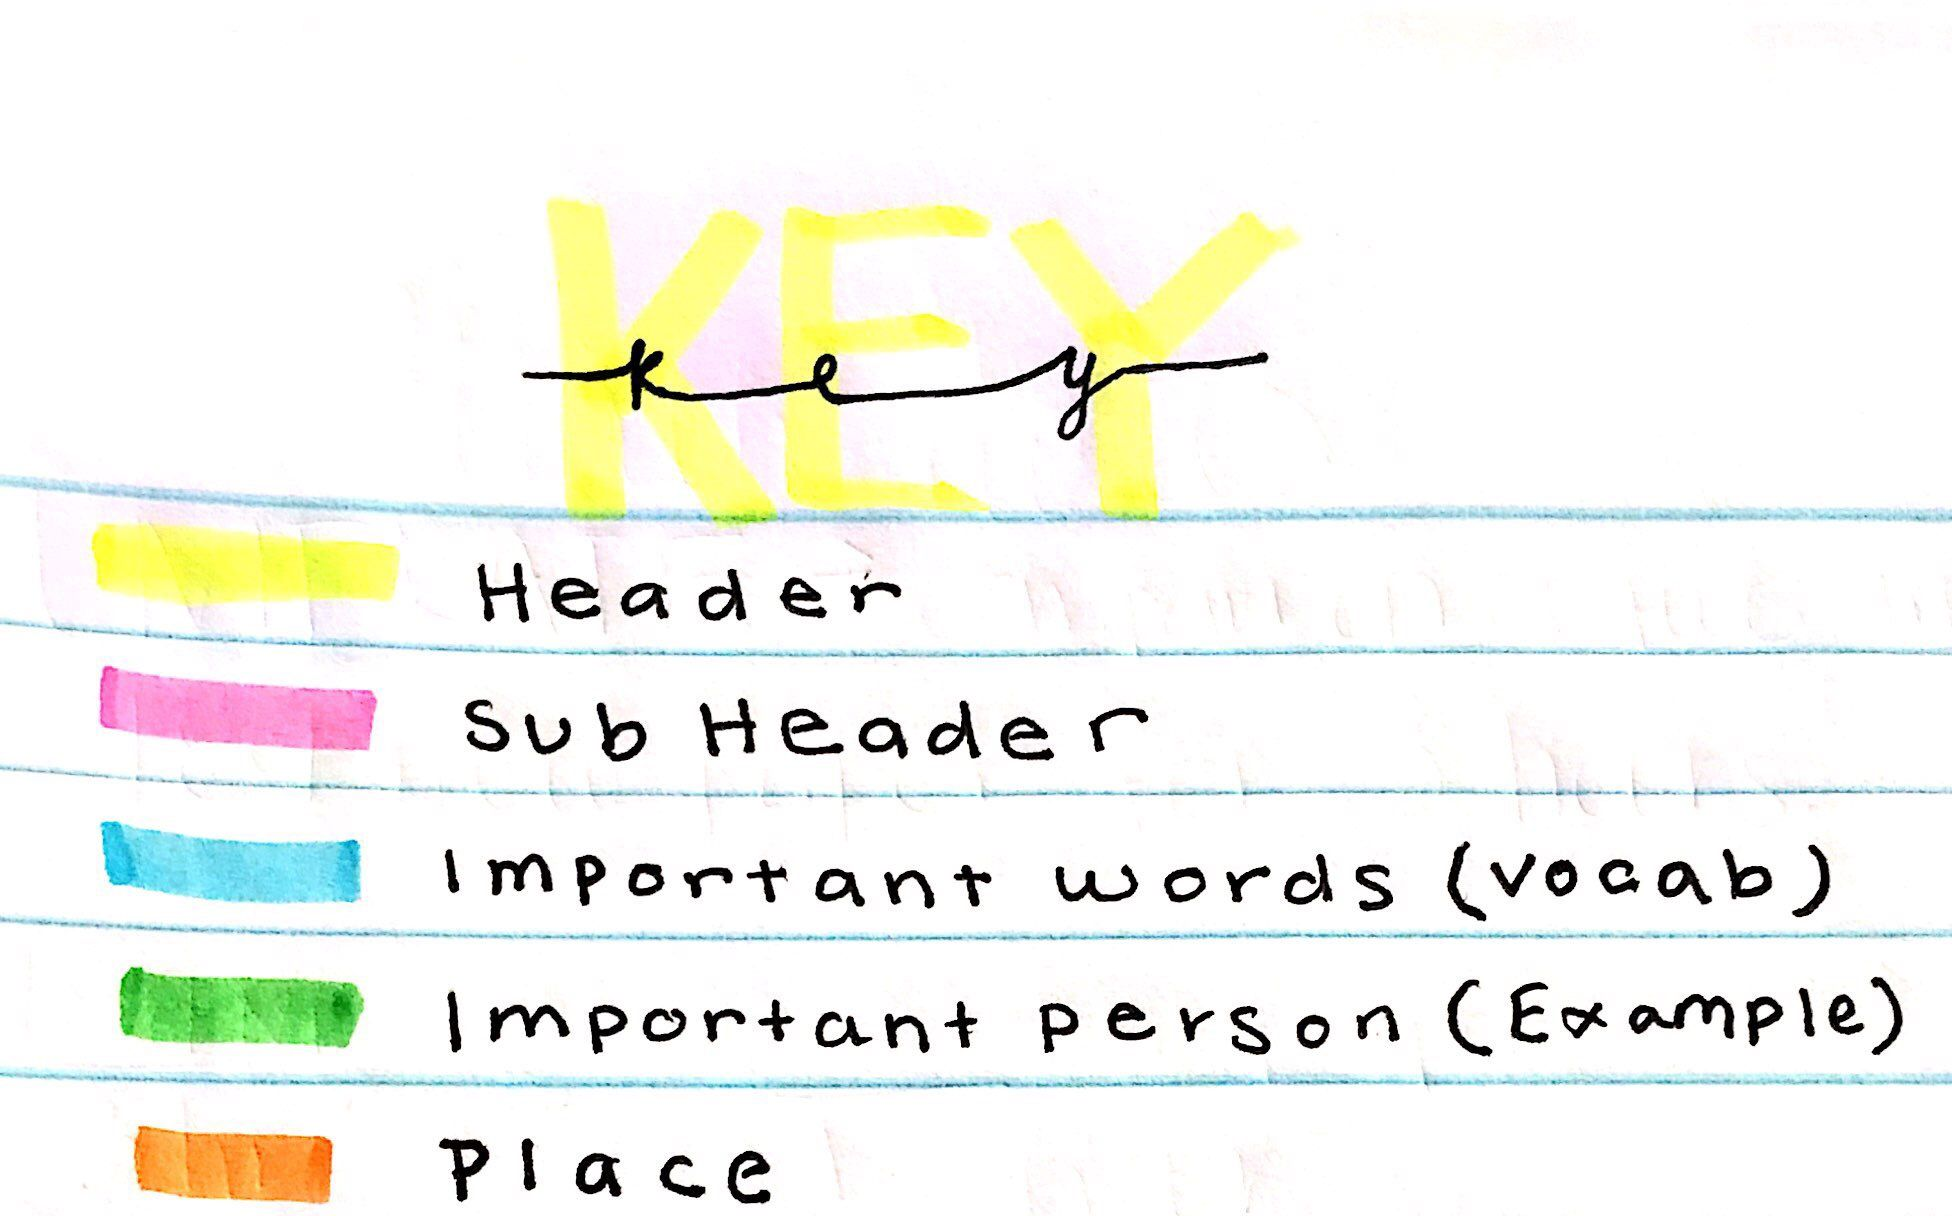 KEY
key
Header
Sub Header
Important words (vocab)
Important person (Example)
Place